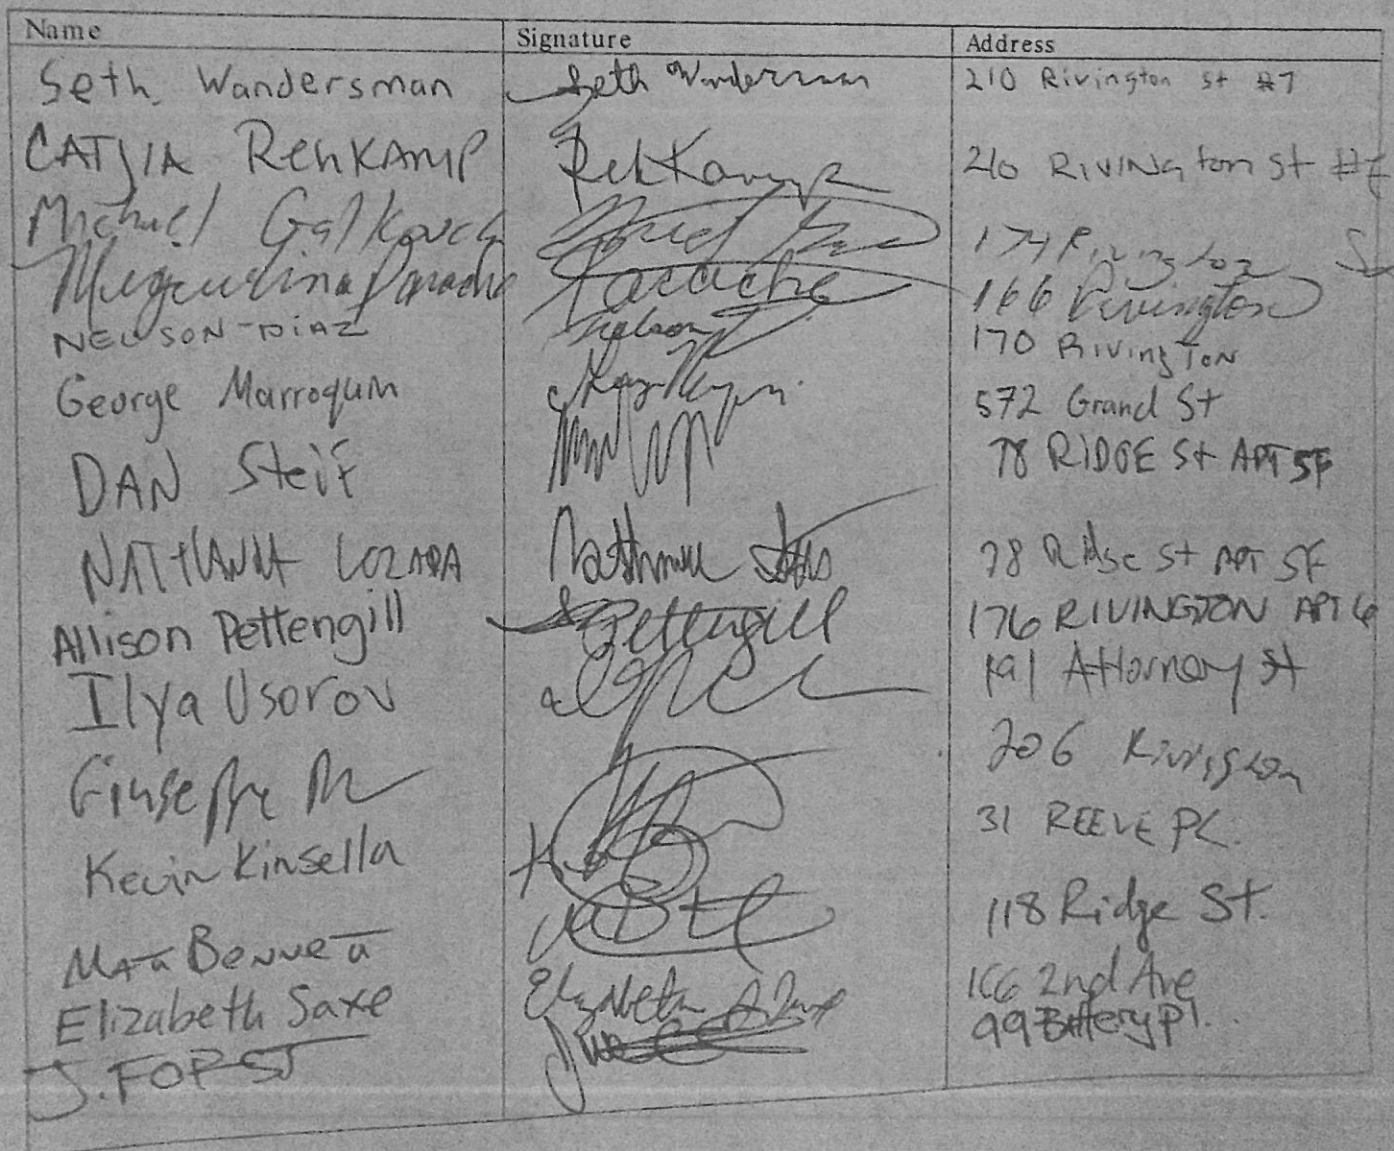 Name Signature Address
Seth Wandersman Seth Wandersman 210 Rivington St #7
CATJIA REHKAMP RehKamp 210 RIVINGTON St
Michael Galkovich 174 Rivington
Parache Parache 166 Rivington
NELSON-DIAZ Nelson 170 RIVINGTON
George Marroqum 572 Grand St
DAN Steif 78 RIDGE St APT 5F
LOZADA 78 Ridge St APT 5F
Allison Pettengill Pettengill 176 RIVINGTON APT 6
Ilya Usorov 191 Attorney St
Giuseppe 206 Rivington
Kevin Kinsella 31 REEVE PL.
Matt Bennett 118 Ridge St.
Elizabeth Saxe Elizabeth A Saxe 166 2nd Ave
J. FORST 99 Battery Pl.